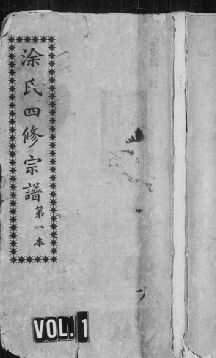 涂氏四修宗譜第一本
VOL. 1